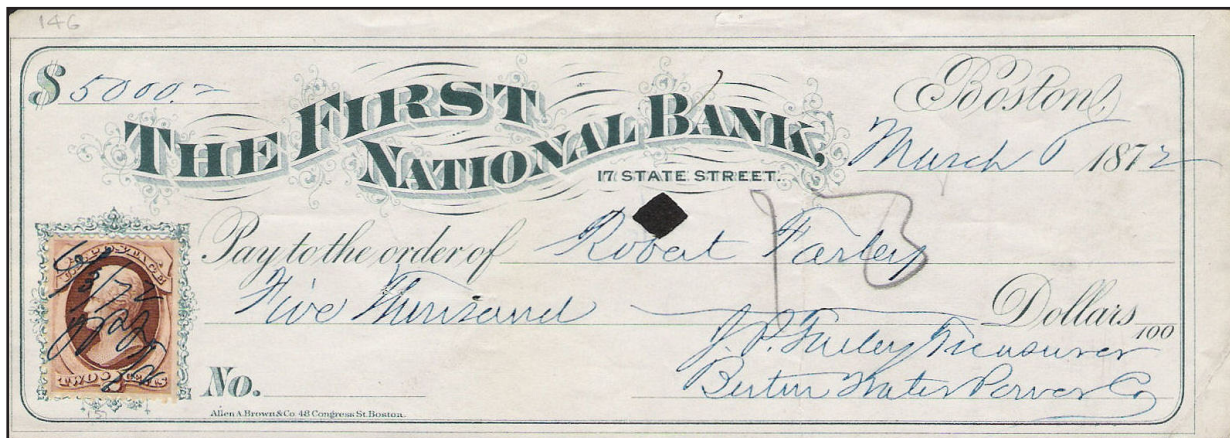 146
$ 5000.
Boston,
THE FIRST NATIONAL BANK,
17 STATE STREET.
March 1872
Pay to the order of Robert Farley
13
Five Thousand Dollars
100
J. P. Farley Treasurer
Boston Water Power Co
No.
U.S. POSTAGE
TWO CENTS
Allen A. Brown & Co. 48 Congress St. Boston.